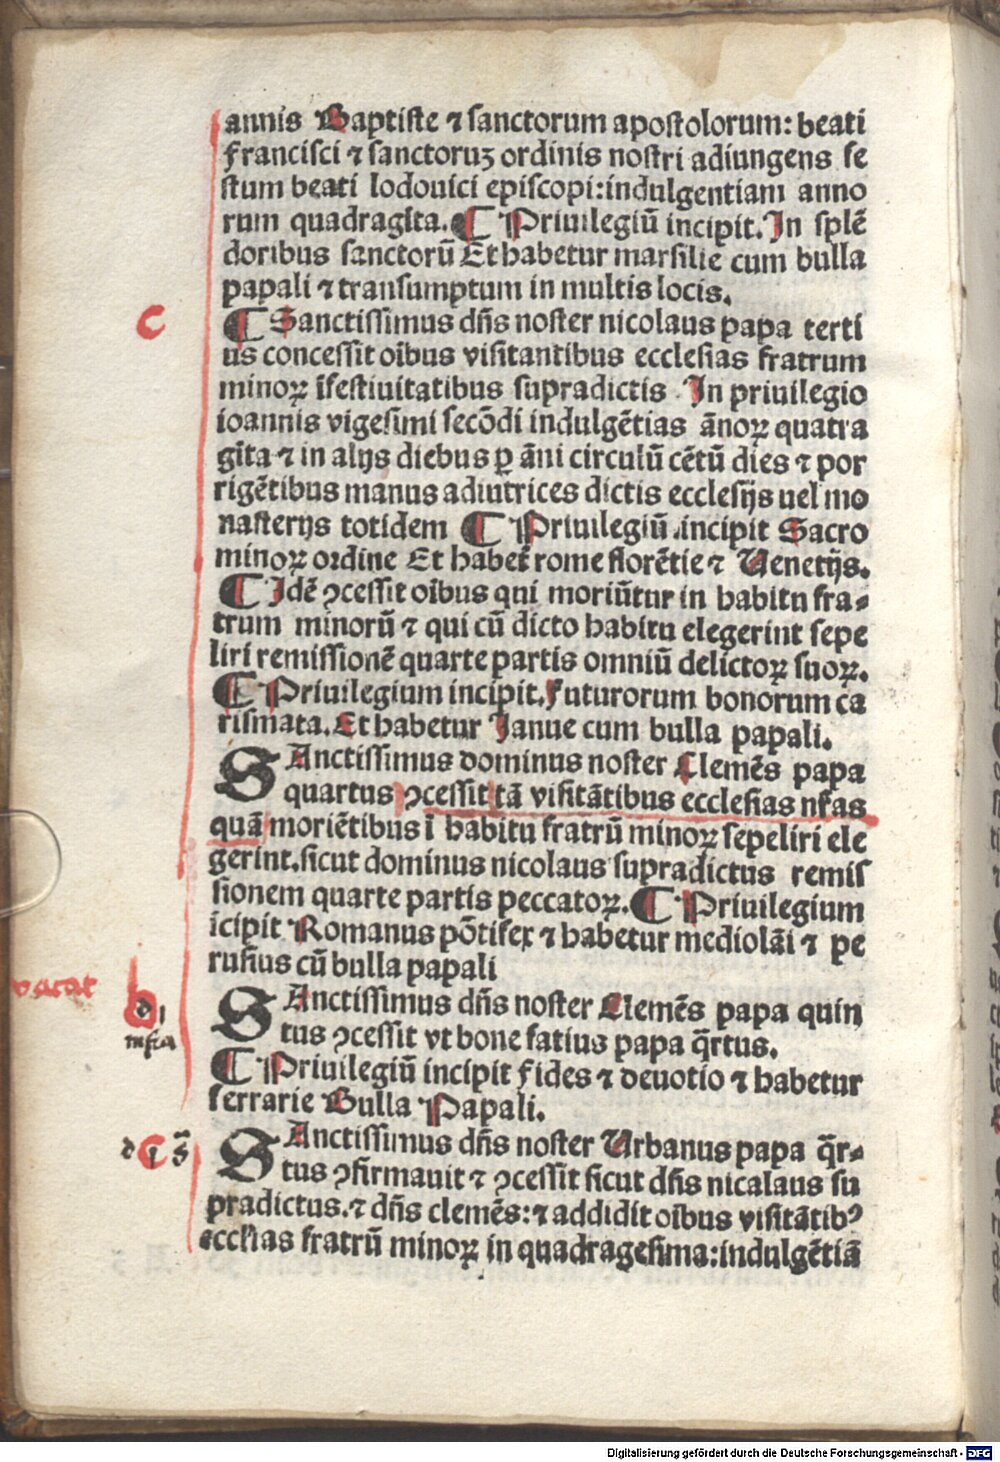 annis Baptiste ⁊ sanctorum apostolorum: beati
francisci ⁊ sanctoruꝫ ordinis nostri adiungens fe
stum beati lodouici episcopi:indulgentiam anno
rum quadragīta. ¶ Priuilegiū incipit. In splē
doribus sanctorū Et habetur marsilie cum bulla
papali ⁊ transumptum in multis locis.
c
¶ Sanctissimus dn̄s noster nicolaus papa terti
us concessit oībus visitantibus ecclesias fratrum
minoꝝ īfestiuitatibus supradictis In priuilegio
ioannis vigesimi secōdi indulgētias ānoꝝ quatra
gīta ⁊ in alijs diebus ꝑ āni circulū cētū dies ⁊ por
rigētibus manus adiutrices dictis ecclesijs uel mo
nasterijs totidem ¶ Priuilegiū incipit Sacro
minoꝝ ordine Et habet̄ rome florētie ⁊ Uenetijs.
¶ Idē ꝯcessit oībus qui moriūtur in habitu fra-
trum minorū ⁊ qui cū dicto habitu elegerint sepe
liri remissionē quarte partis omniū delictoꝝ suoꝝ.
¶ Priuilegium incipit. Futurorum bonorum ca
rismata. Et habetur Ianue cum bulla papali.
SAnctissimus dominus noster Clemēs papa
quartus ꝯcessit tā visitātibus ecclesias nr̄as
quā moriētibus ī habitu fratrū minoꝝ sepeliri ele
gerint. sicut dominus nicolaus supradictus remis
sionem quarte partis peccatoꝝ. ¶ Priuilegium
īcipit Romanus pōtifex ⁊ habetur mediolāi ⁊ pe
rusius cū bulla papali
vacat
b
infra
SAnctissimus dn̄s noster Clemēs papa quin
tus ꝯcessit vt bone fatius papa q̄rtus.
¶ Priuilegiū incipit Fides ⁊ deuotio ⁊ habetur
ferrarie Bulla Papali.
SAnctissimus dn̄s noster Urbanus papa q̄r-
tus ꝯfirmauit ⁊ ꝯcessit sicut dn̄s nicalaus su
pradictus. ⁊ dn̄s clemēs: ⁊ addidit oībus visitātibꝰ
eccl̄ias fratrū minoꝝ in quadragesima: indulgētiā
Digitalisierung gefördert durch die Deutsche Forschungsgemeinschaft - DFG